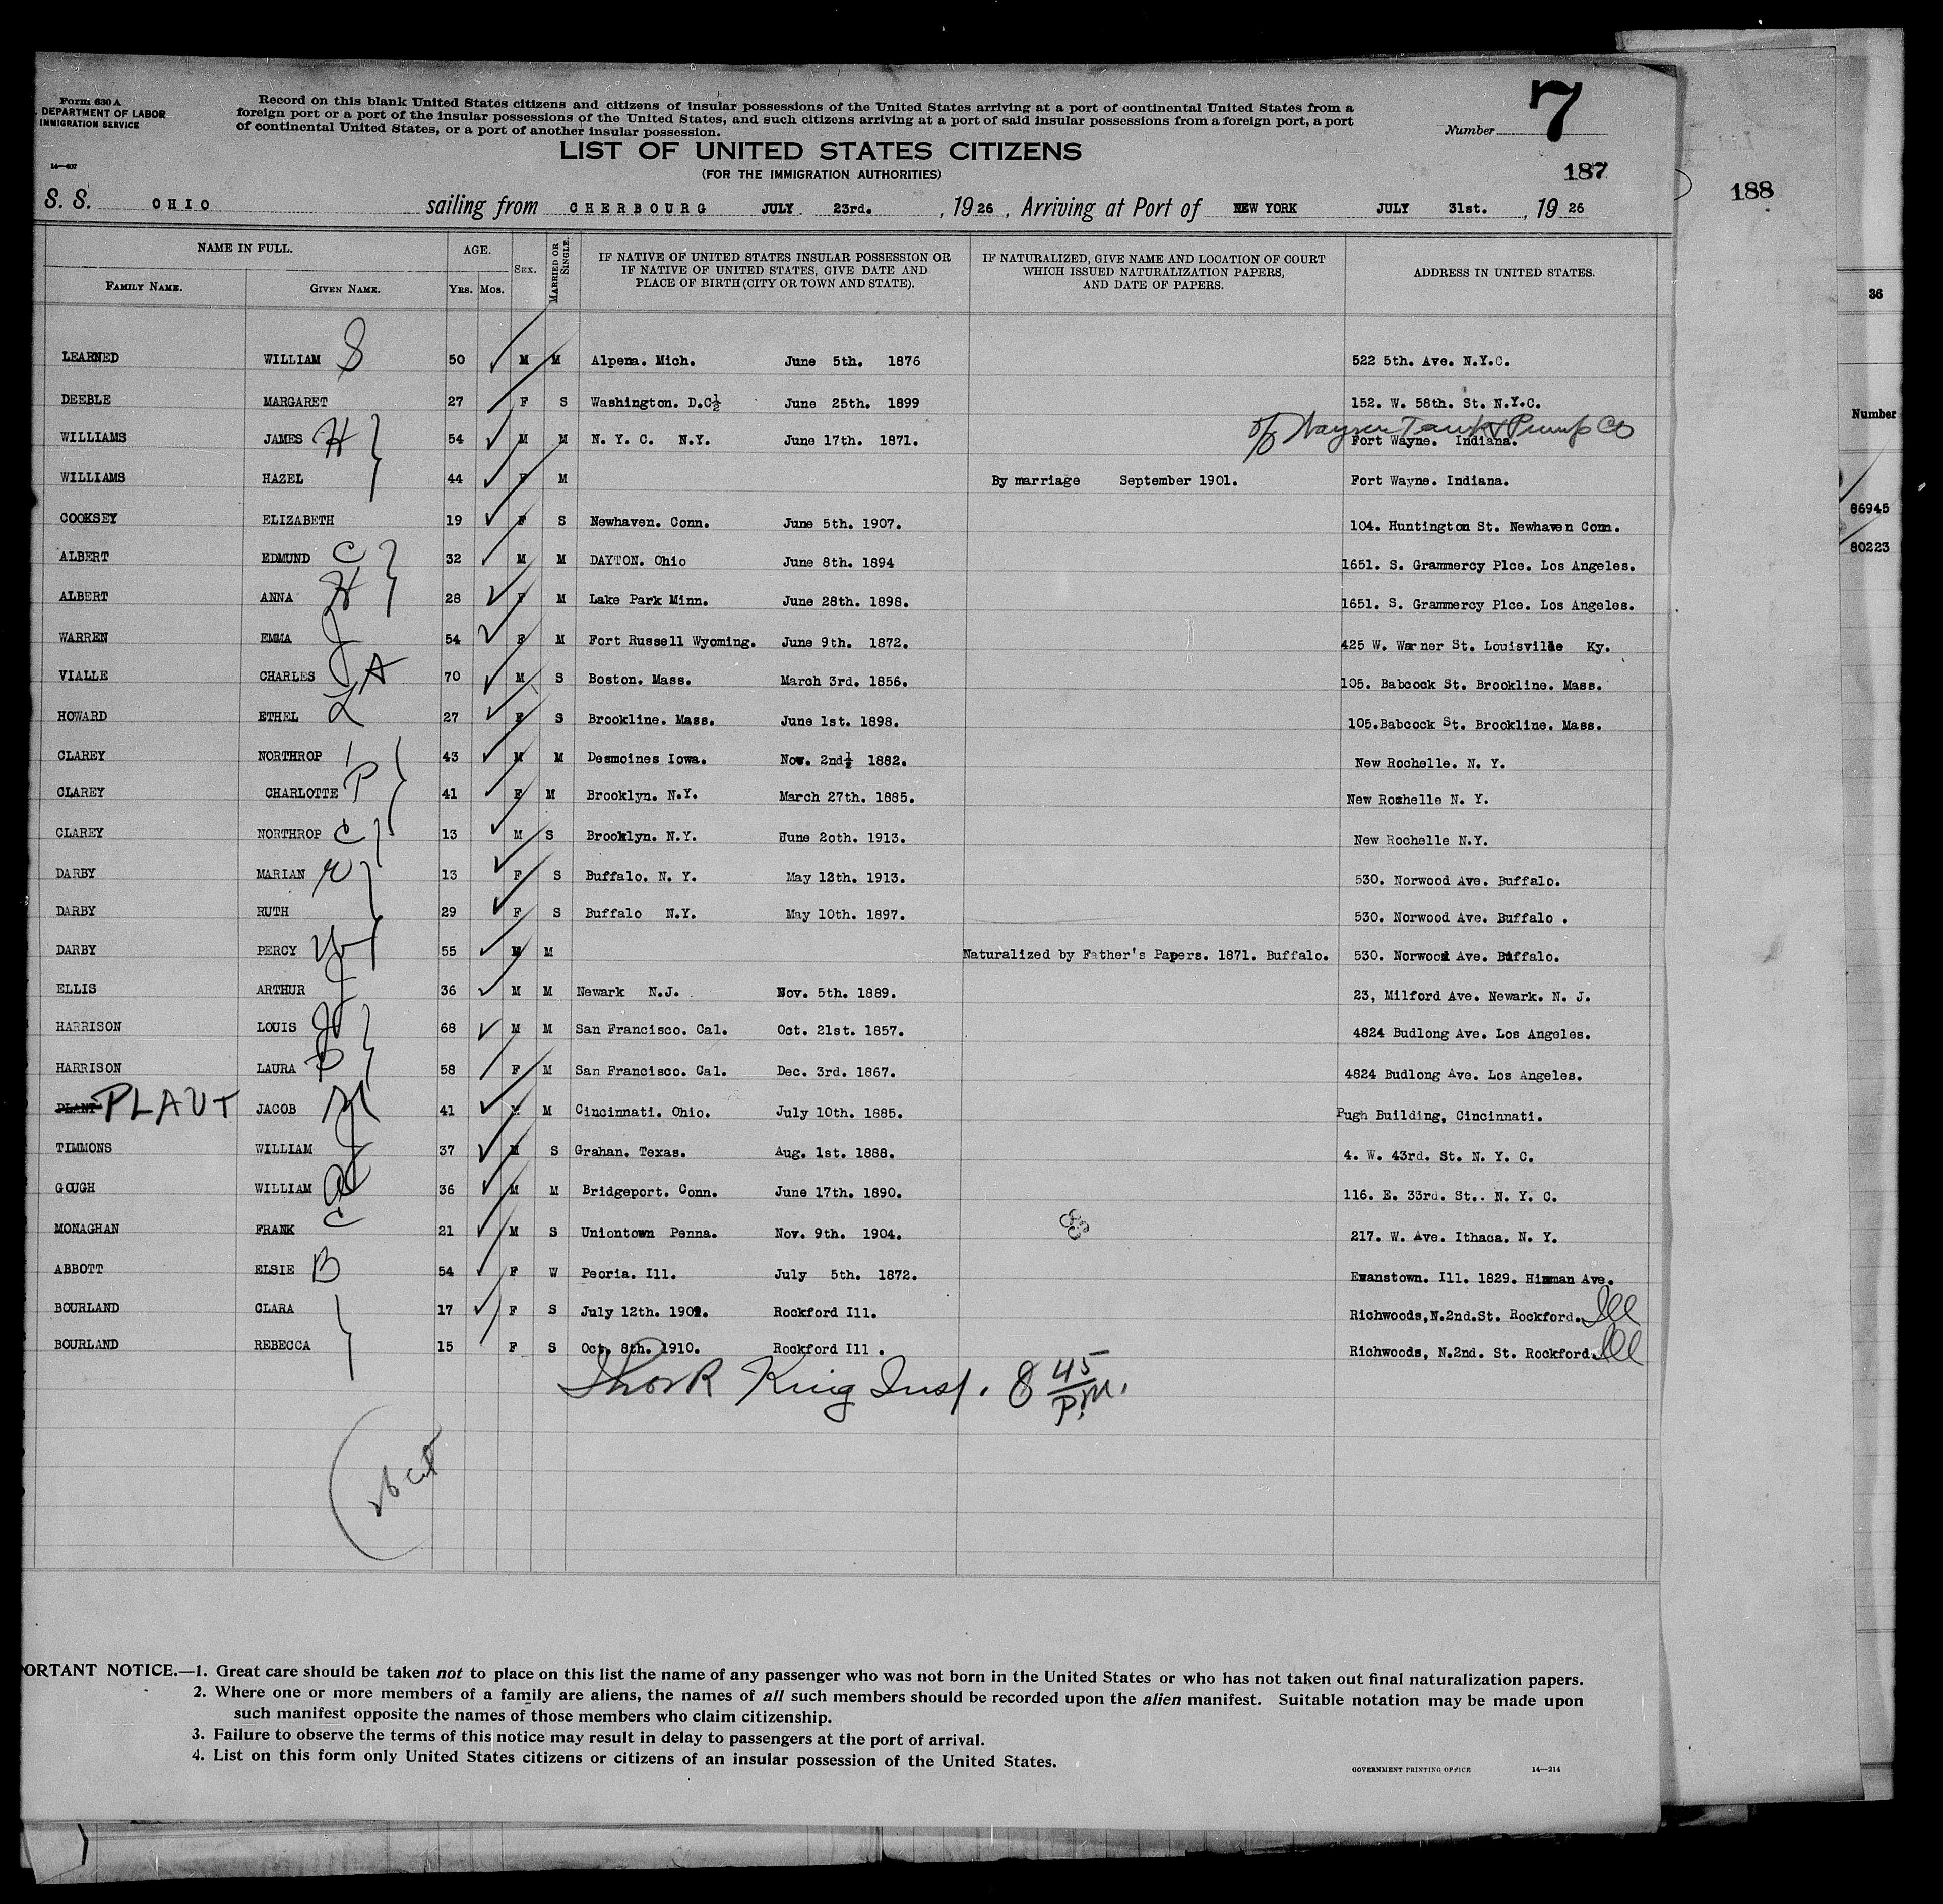 Form 630 A
. DEPARTMENT OF LABOR
IMMIGRATION SERVICE
14—607
Record on this blank United States citizens and citizens of insular possessions of the United States arriving at a port of continental United States from a
foreign port or a port of the insular possessions of the United States, and such citizens arriving at a port of said insular possessions from a foreign port, a port
of continental United States, or a port of another insular possession.
Number 7
LIST OF UNITED STATES CITIZENS
(FOR THE IMMIGRATION AUTHORITIES)
187
188
S. S. OHIO sailing from CHERBOURG JULY 23rd. , 1926 , Arriving at Port of NEW YORK JULY 31st. , 19 26
NAME IN FULL. AGE. SEX. MARRIED OR SINGLE. IF NATIVE OF UNITED STATES INSULAR POSSESSION OR IF NATIVE OF UNITED STATES, GIVE DATE AND PLACE OF BIRTH (CITY OR TOWN AND STATE). IF NATURALIZED, GIVE NAME AND LOCATION OF COURT WHICH ISSUED NATURALIZATION PAPERS, AND DATE OF PAPERS. ADDRESS IN UNITED STATES.
FAMILY NAME. GIVEN NAME. YRS. MOS.
36
LEARNED WILLIAM S 50 M M Alpena. Mich. June 5th. 1876 522 5th. Ave. N.Y.C.
DEEBLE MARGARET 27 F S Washington. D.C½ June 25th. 1899 152. W. 58th. St. N.Y.C.
Number
of Wayne Tank & Pump Co
WILLIAMS JAMES H 54 M M N. Y. C. N.Y. June 17th. 1871. Fort Wayne. Indiana.
WILLIAMS HAZEL 44 F M By marriage September 1901. Fort Wayne. Indiana.
86945
COOKSEY ELIZABETH 19 F S Newhaven. Conn. June 5th. 1907. 104. Huntington St. Newhaven Conn.
80223
ALBERT EDMUND C 32 M M DAYTON. Ohio June 8th. 1894 1651. S. Grammercy Plce. Los Angeles.
ALBERT ANNA H 28 F M Lake Park Minn. June 28th. 1898. 1651. S. Grammercy Plce. Los Angeles.
WARREN EMMA J 54 F M Fort Russell Wyoming. June 9th. 1872. 425 W. Warner St. Louisville Ky.
VIALLE CHARLES A 70 M S Boston. Mass. March 3rd. 1856. 105. Babcock St. Brookline. Mass.
HOWARD ETHEL L 27 F S Brookline. Mass. June 1st. 1898. 105.Babcock St. Brookline. Mass.
CLAREY NORTHROP 43 M M Desmoines Iowa. Nov. 2nd½ 1882. New Rochelle. N. Y.
CLAREY CHARLOTTE P 41 F M Brooklyn. N.Y. March 27th. 1885. New Rochelle N. Y.
CLAREY NORTHROP C 13 M S Brooklyn. N.Y. June 2oth. 1913. New Rochelle N.Y.
DARBY MARIAN W 13 F S Buffalo. N. Y. May 12th. 1913. 530. Norwood Ave. Buffalo.
DARBY RUTH 29 F S Buffalo N.Y. May 10th. 1897. 530. Norwood Ave. Buffalo .
DARBY PERCY W 55 M M Naturalized by Father's Papers. 1871. Buffalo. 530. Norwood Ave. Buffalo.
ELLIS ARTHUR J 36 M M Newark N.J. Nov. 5th. 1889. 23, Milford Ave. Newark. N. J.
HARRISON LOUIS 68 M M San Francisco. Cal. Oct. 21st. 1857. 4824 Budlong Ave. Los Angeles.
HARRISON LAURA B 58 F M San Francisco. Cal. Dec. 3rd. 1867. 4824 Budlong Ave. Los Angeles.
PLANT PLAUT JACOB M 41 M M Cincinnati. Ohio. July 10th. 1885. Pugh Building, Cincinnati.
TIMMONS WILLIAM J 37 M S Grahan. Texas. Aug. 1st. 1888. 4. W. 43rd. St. N. Y. C.
GOUGH WILLIAM A 36 M M Bridgeport. Conn. June 17th. 1890. 116. E. 33rd. St.. N. Y. C.
MONAGHAN FRANK C 21 M S Uniontown Penna. Nov. 9th. 1904. 217. W. Ave. Ithaca. N. Y.
ABBOTT ELSIE B 54 F W Peoria. Ill. July 5th. 1872. Evanstown. Ill. 1829. Hinman Ave.
BOURLAND CLARA 17 F S July 12th. 1909. Rockford Ill. Richwoods,N.2nd.St. Rockford. Ill
BOURLAND REBECCA 15 F S Oct. 8th. 1910. Rockford Ill . Richwoods, N.2nd. St. Rockford. Ill
King Insp. 8 45 P.M.
ORTANT NOTICE.—1. Great care should be taken not to place on this list the name of any passenger who was not born in the United States or who has not taken out final naturalization papers.
2. Where one or more members of a family are aliens, the names of all such members should be recorded upon the alien manifest. Suitable notation may be made upon
such manifest opposite the names of those members who claim citizenship.
3. Failure to observe the terms of this notice may result in delay to passengers at the port of arrival.
4. List on this form only United States citizens or citizens of an insular possession of the United States.
GOVERNMENT PRINTING OFFICE 14—214